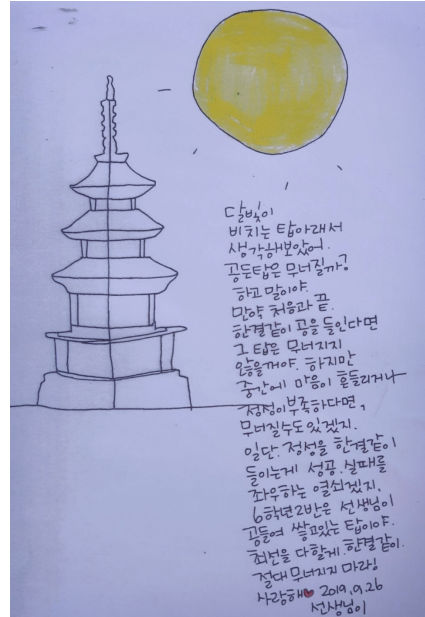 달빛이
비치는 탑아래서
생각해보았어.
공든탑은 무너질까?
하고 말이야.
만약 처음과 끝.
한결같이 공을 들인다면
그 탑은 무너지지
않을꺼야. 하지만
중간에 마음이 흔들리거나
정성이 부족하다면,
무너질수도 있겠지.
일단. 정성을 한결같이
들이는게 성공.실패를
좌우하는 열쇠겠지.
6학년2반은 선생님이
공들여 쌓고있는 탑이야.
최선을 다할게. 한결같이.
절대 무너지지 마라!
사랑해❤ 2019.9.26
선생님이